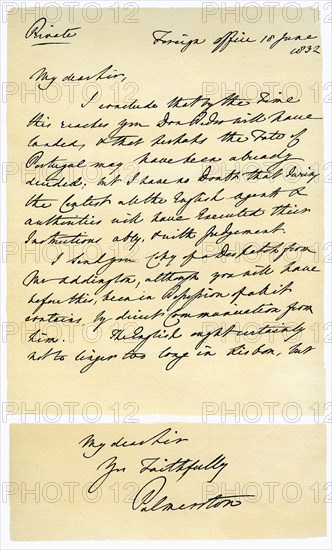 Private
Foreign office 18 June
1832
My dear Sir,
I conclude that by the Time
this reaches you Don Pedro will have
landed, & that perhaps the Fate of
Portugal may have been already
decided; but I have no Doubt that During
the Contest all the English agents &
authorities will have Executed their
Instructions ably, & with Judgement.
I send you Copy of a Despatch from
Mr addington, although you will have
before this, been in Possession of all it
contains, by direct communication from
him. The English ought certainly
not to linger too long in Lisbon, but
My dear Sir
Yrs Faithfully
Palmerston